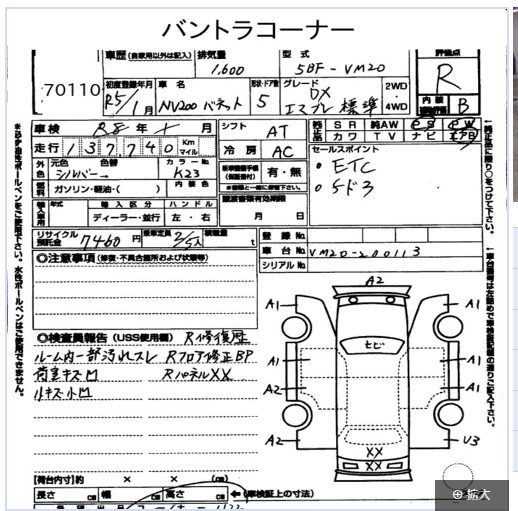 バントラコーナー
車歴 (自家用以外は記入) 排気量 型式 評価点
1,600 5BF-VM20 R
70110
初度登録年月 車名 形状・ドア数 グレード 2WD 4WD
R5/1月 NV200 バネット 5 DX エマブレ 標準
内装 B
車検 R8年 月 シフト AT
純正品 SR 純AW PS PW
カワ TV ナビ エアB
走行 137,740 Km マイル 冷房 AC
セールスポイント
・ETC
・5ド3
外色 元色 色替 カラーNo.
シルバー→ K23
有・無
燃料 ガソリン・軽油・( ) 内装色
輸入車用 年式 輸入区分 ハンドル
ディーラー・並行 左・右
月 日
リサイクル預託金 7460円 乗車定員 2/5人 積載量 t
登録No.
車台No. VM20-200113
シリアルNo.
◎注意事項 (修復・不具合箇所および状態等)
◎検査員報告 (USS使用欄) R修復歴
ルーム内一部汚れスレ Rフロア修正BP
荷室キズ凹 RパネルXX
小キズ小凹
A2
A1 A1
A1 A1
A2 A1
A2 U3
ヒビ
XX
XX
【荷台内寸】約 × × (cm)
長さ cm 幅 cm 高さ cm ←(車検証上の寸法)
※必ず油性ボールペンをご使用下さい。水性ボールペンはご使用できません。
↑純正品に限り○をつけて下さい。
↑車台番号は左詰めで車検証記載の通りご記入下さい。
⊕拡大